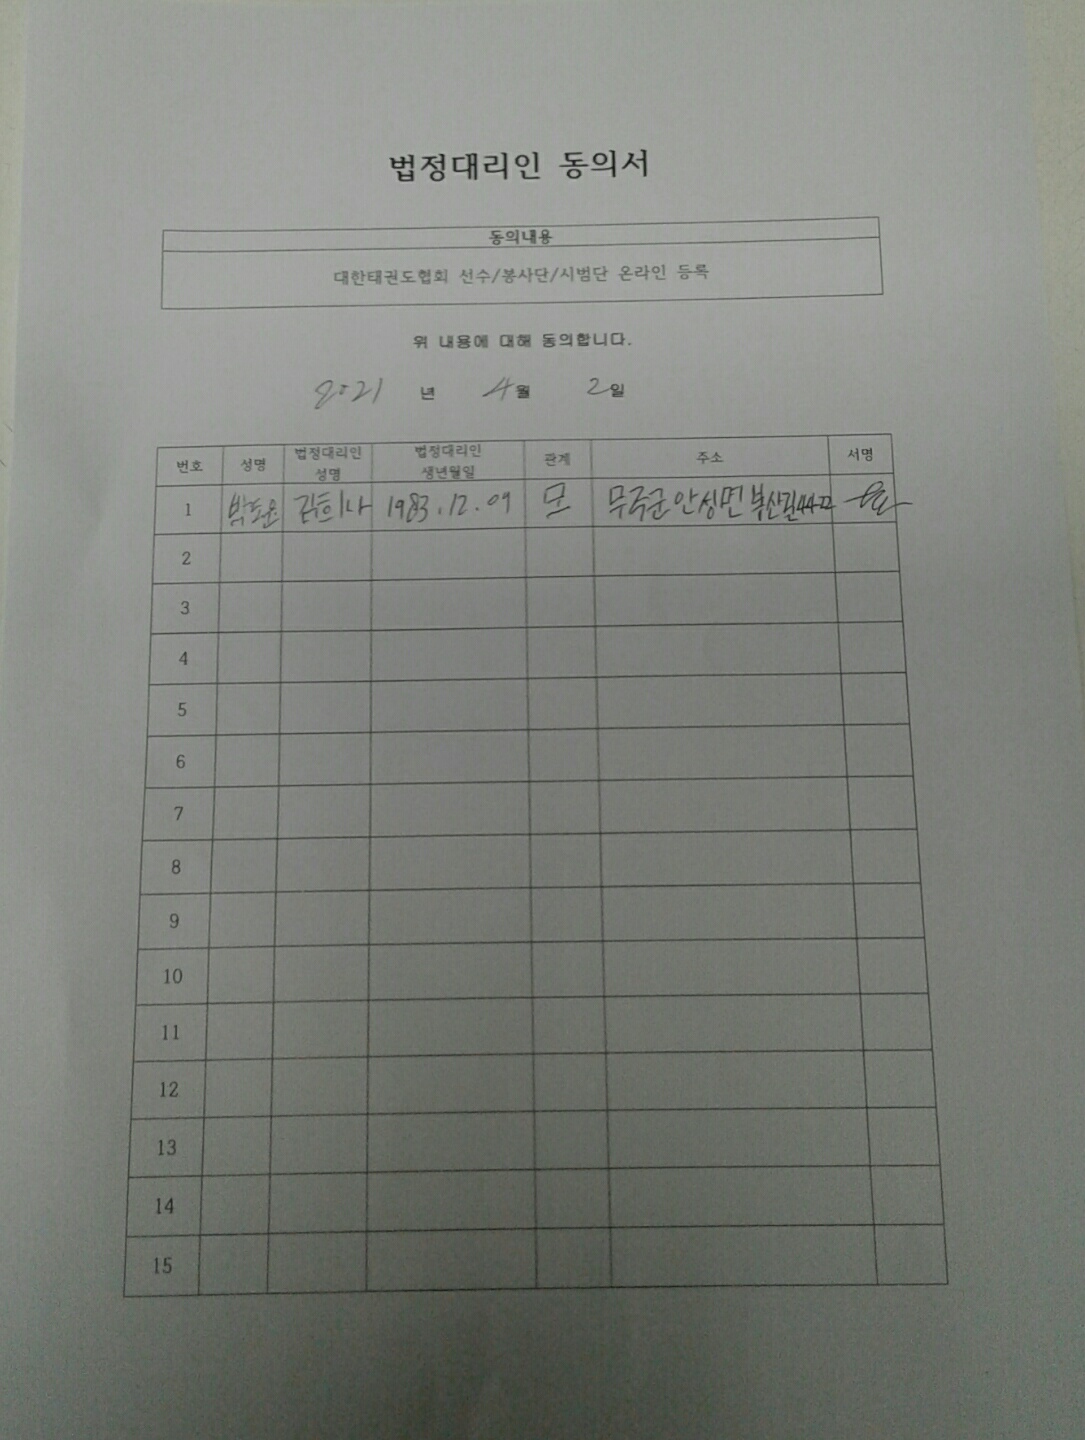 법정대리인 동의서
동의내용
대한태권도협회 선수/봉사단/시범단 온라인 등록
위 내용에 대해 동의합니다.
2021 년 4월 2일
번호 성명 법정대리인 성명 법정대리인 생년월일 관계 주소 서명
1 박도윤 김희나 1983.12.09 모 무주군 안성면 북산길44-22
2
3
4
5
6
7
8
9
10
11
12
13
14
15